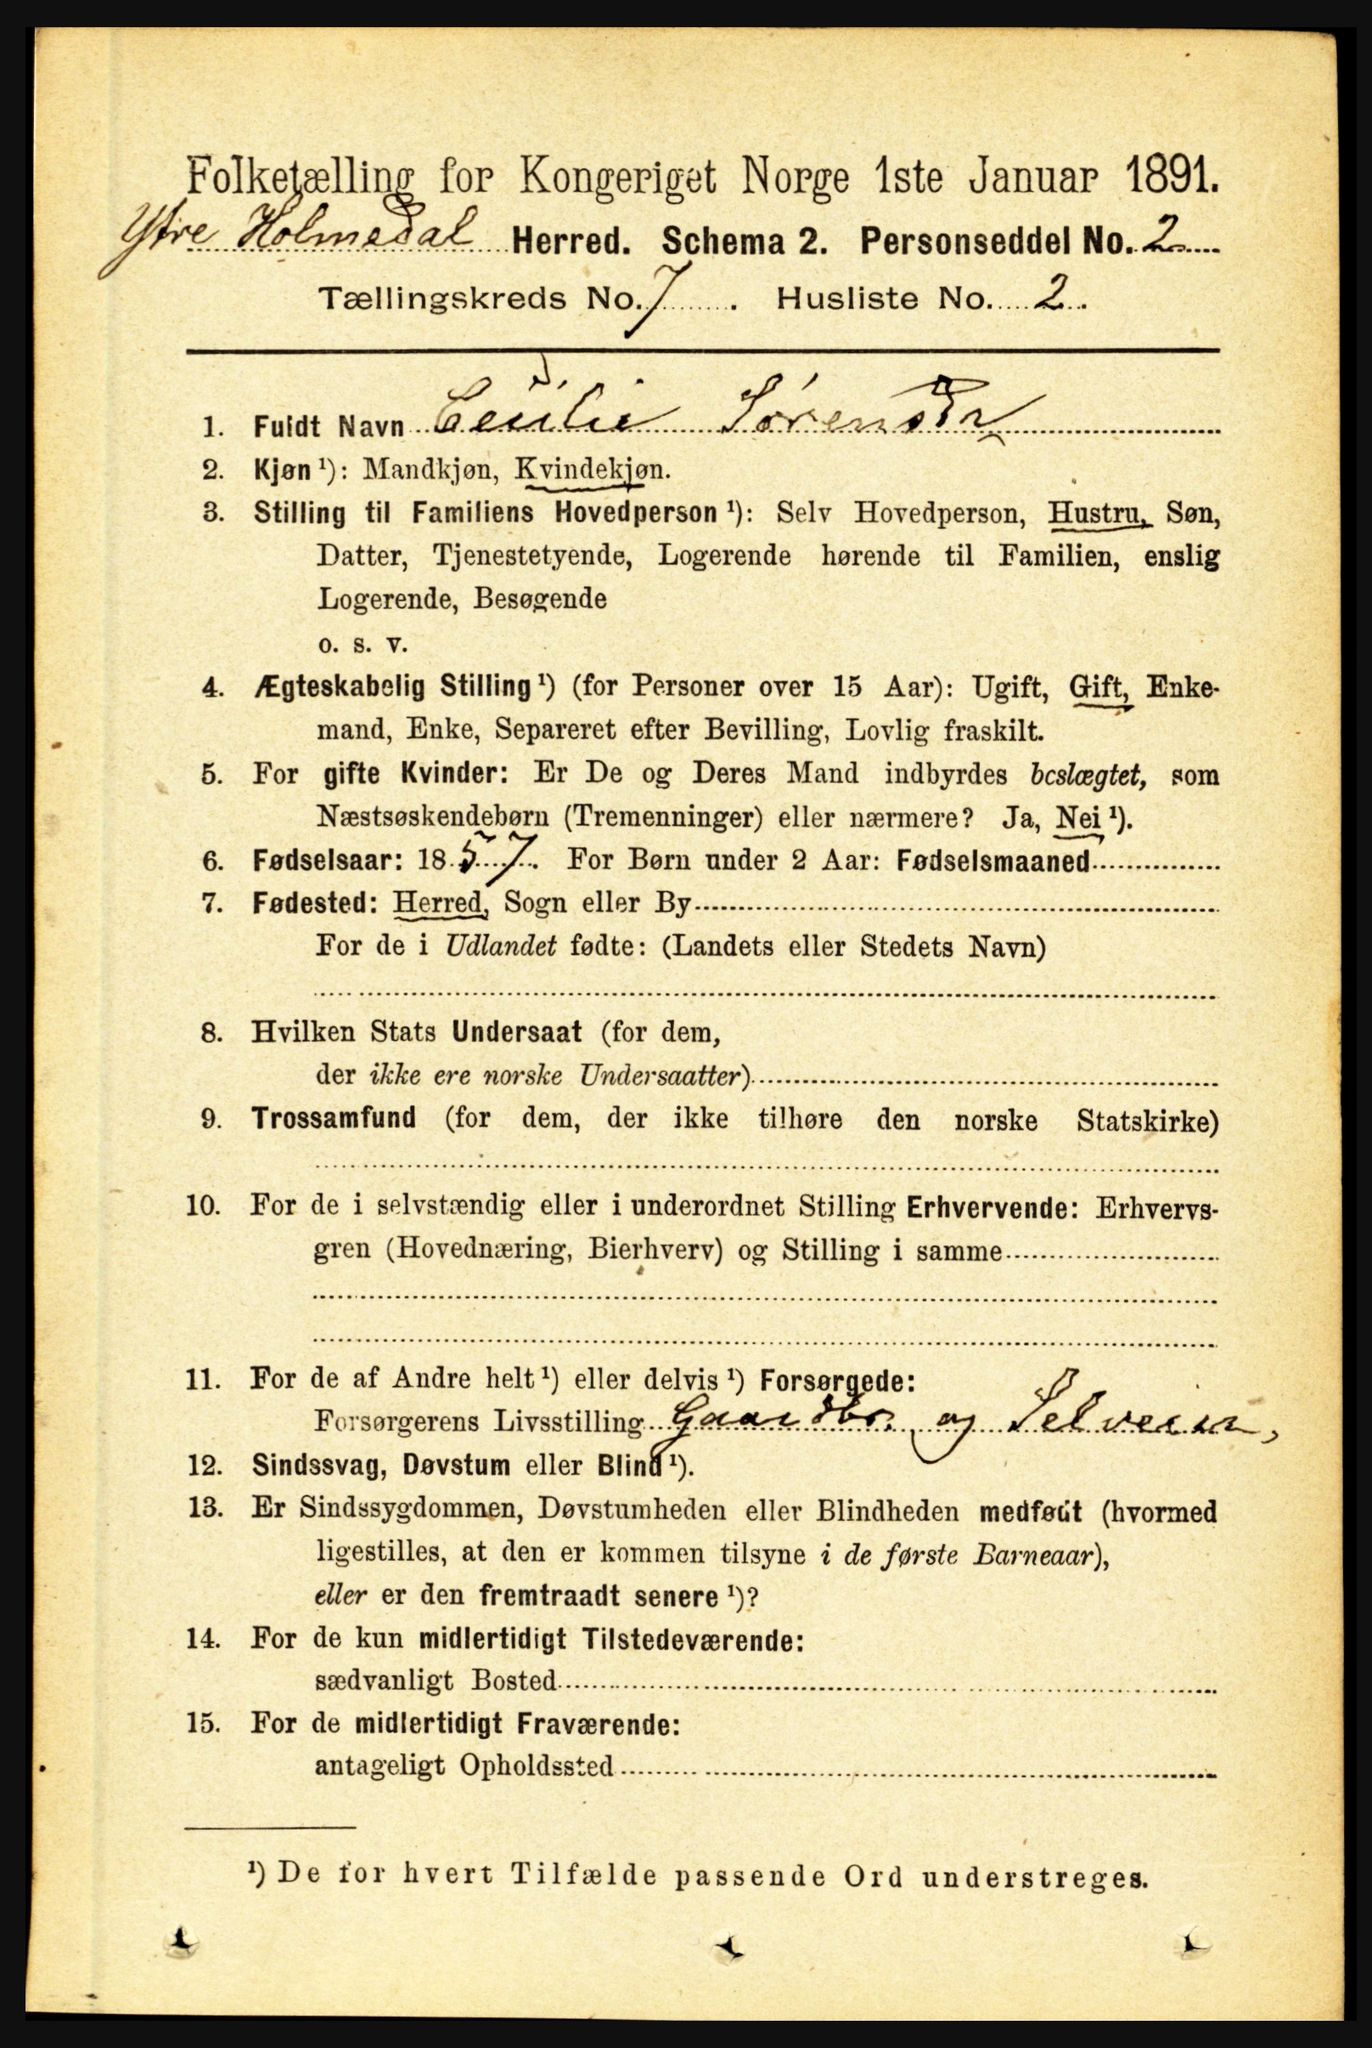 Folketælling for Kongeriget Norge 1ste Januar 1891.
Ytre Holmedal Herred. Schema 2. Personseddel No. 2
Tællingskreds No. 7. Husliste No. 2.
1. Fuldt Navn Cecilie Sørensdtr
2. Kjøn ¹): Mandkjøn, Kvindekjøn.
3. Stilling til Familiens Hovedperson ¹): Selv Hovedperson, Hustru, Søn,
Datter, Tjenestetyende, Logerende hørende til Familien, enslig
Logerende, Besøgende
o. s. v.
4. Ægteskabelig Stilling ¹) (for Personer over 15 Aar): Ugift, Gift, Enke-
mand, Enke, Separeret efter Bevilling, Lovlig fraskilt.
5. For gifte Kvinder: Er De og Deres Mand indbyrdes beslægtet, som
Næstsøskendebørn (Tremenninger) eller nærmere? Ja, Nei ¹).
6. Fødselsaar: 1857. For Børn under 2 Aar: Fødselsmaaned
7. Fødested: Herred, Sogn eller By
For de i Udlandet fødte: (Landets eller Stedets Navn)
8. Hvilken Stats Undersaat (for dem,
der ikke ere norske Undersaatter)
9. Trossamfund (for dem, der ikke tilhøre den norske Statskirke)
10. For de i selvstændig eller i underordnet Stilling Erhvervende: Erhvervs-
gren (Hovednæring, Bierhverv) og Stilling i samme
11. For de af Andre helt ¹) eller delvis ¹) Forsørgede:
Forsørgerens Livsstilling Gaardbr. og Selveier,
12. Sindssvag, Døvstum eller Blind ¹).
13. Er Sindssygdommen, Døvstumheden eller Blindheden medfødt (hvormed
ligestilles, at den er kommen tilsyne i de første Barneaar),
eller er den fremtraadt senere ¹)?
14. For de kun midlertidigt Tilstedeværende:
sædvanligt Bosted
15. For de midlertidigt Fraværende:
antageligt Opholdssted
¹) De for hvert Tilfælde passende Ord understreges.